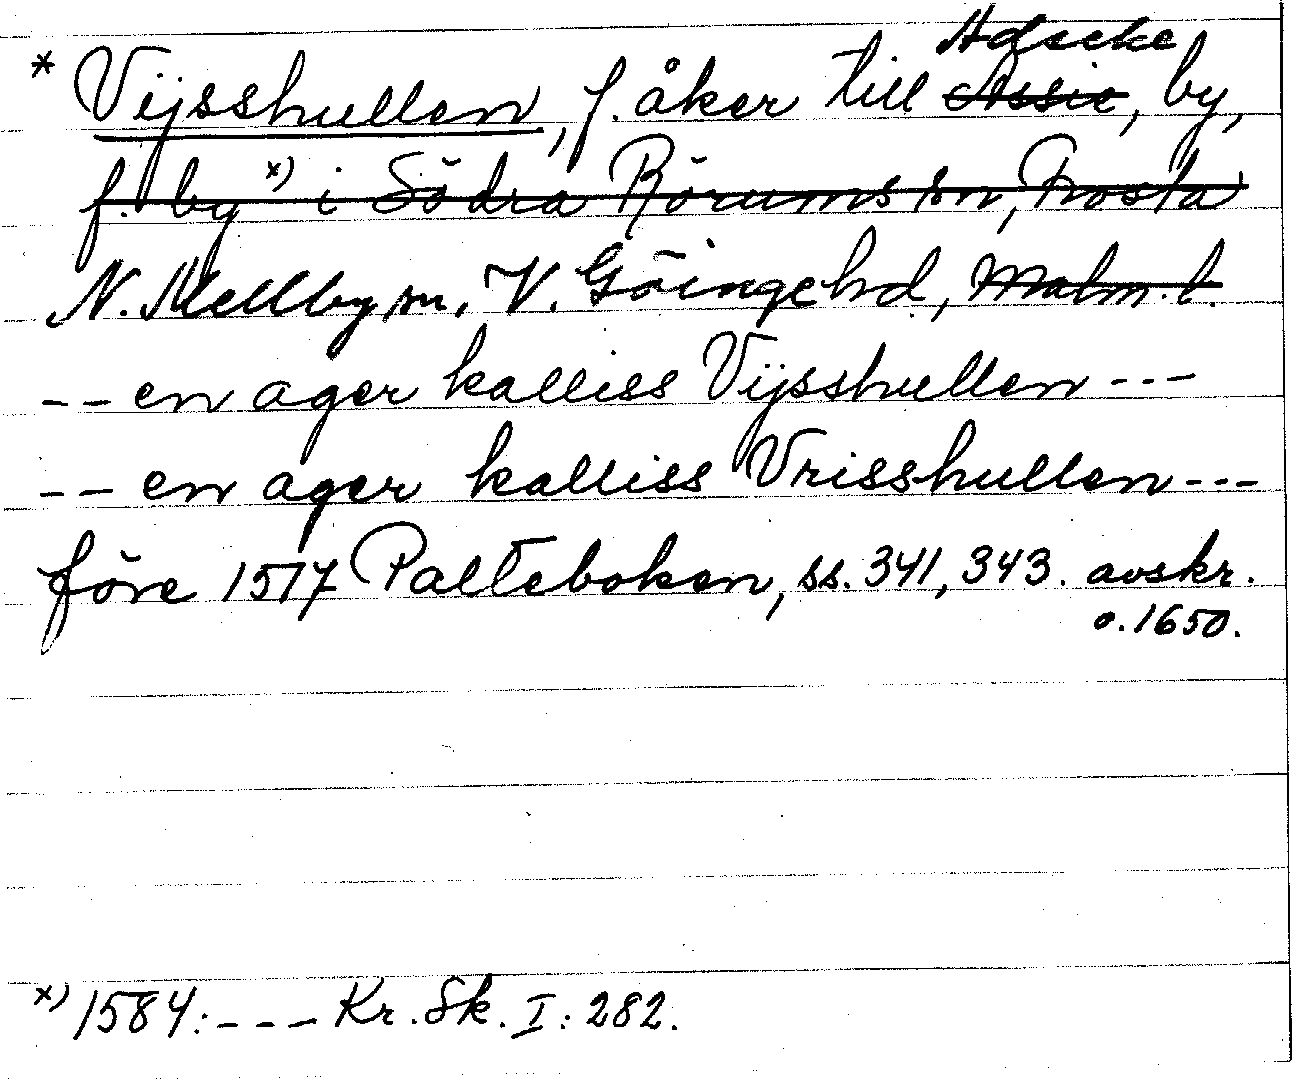 * Vijsshullen, f. åker till Adseke Assie, by,
f. by x) i Södra Rörums sn, Frosta
N. Mellby sn, V. Göingehd, Malm. l.
-- en ager kalliss Vijsshullen ---
-- en ager kalliss Vrisshullen ---
före 1517 Palteboken, ss. 341, 343. avskr.
o. 1650.
x) 1584: --- Kr. Sk. I: 282.